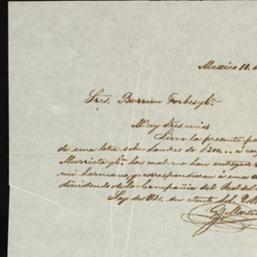 Mexico 11. d
Sres. Barron Forbes y Ca.
Muy Sres mios
Sirva la presente pa
de una letra sobre Londres de
Murrieta y Ca. las cual me han entregado
mi hermano, y correspondieron á una
dividendo de la Compañia del Real del
Soy de Vds. su atento